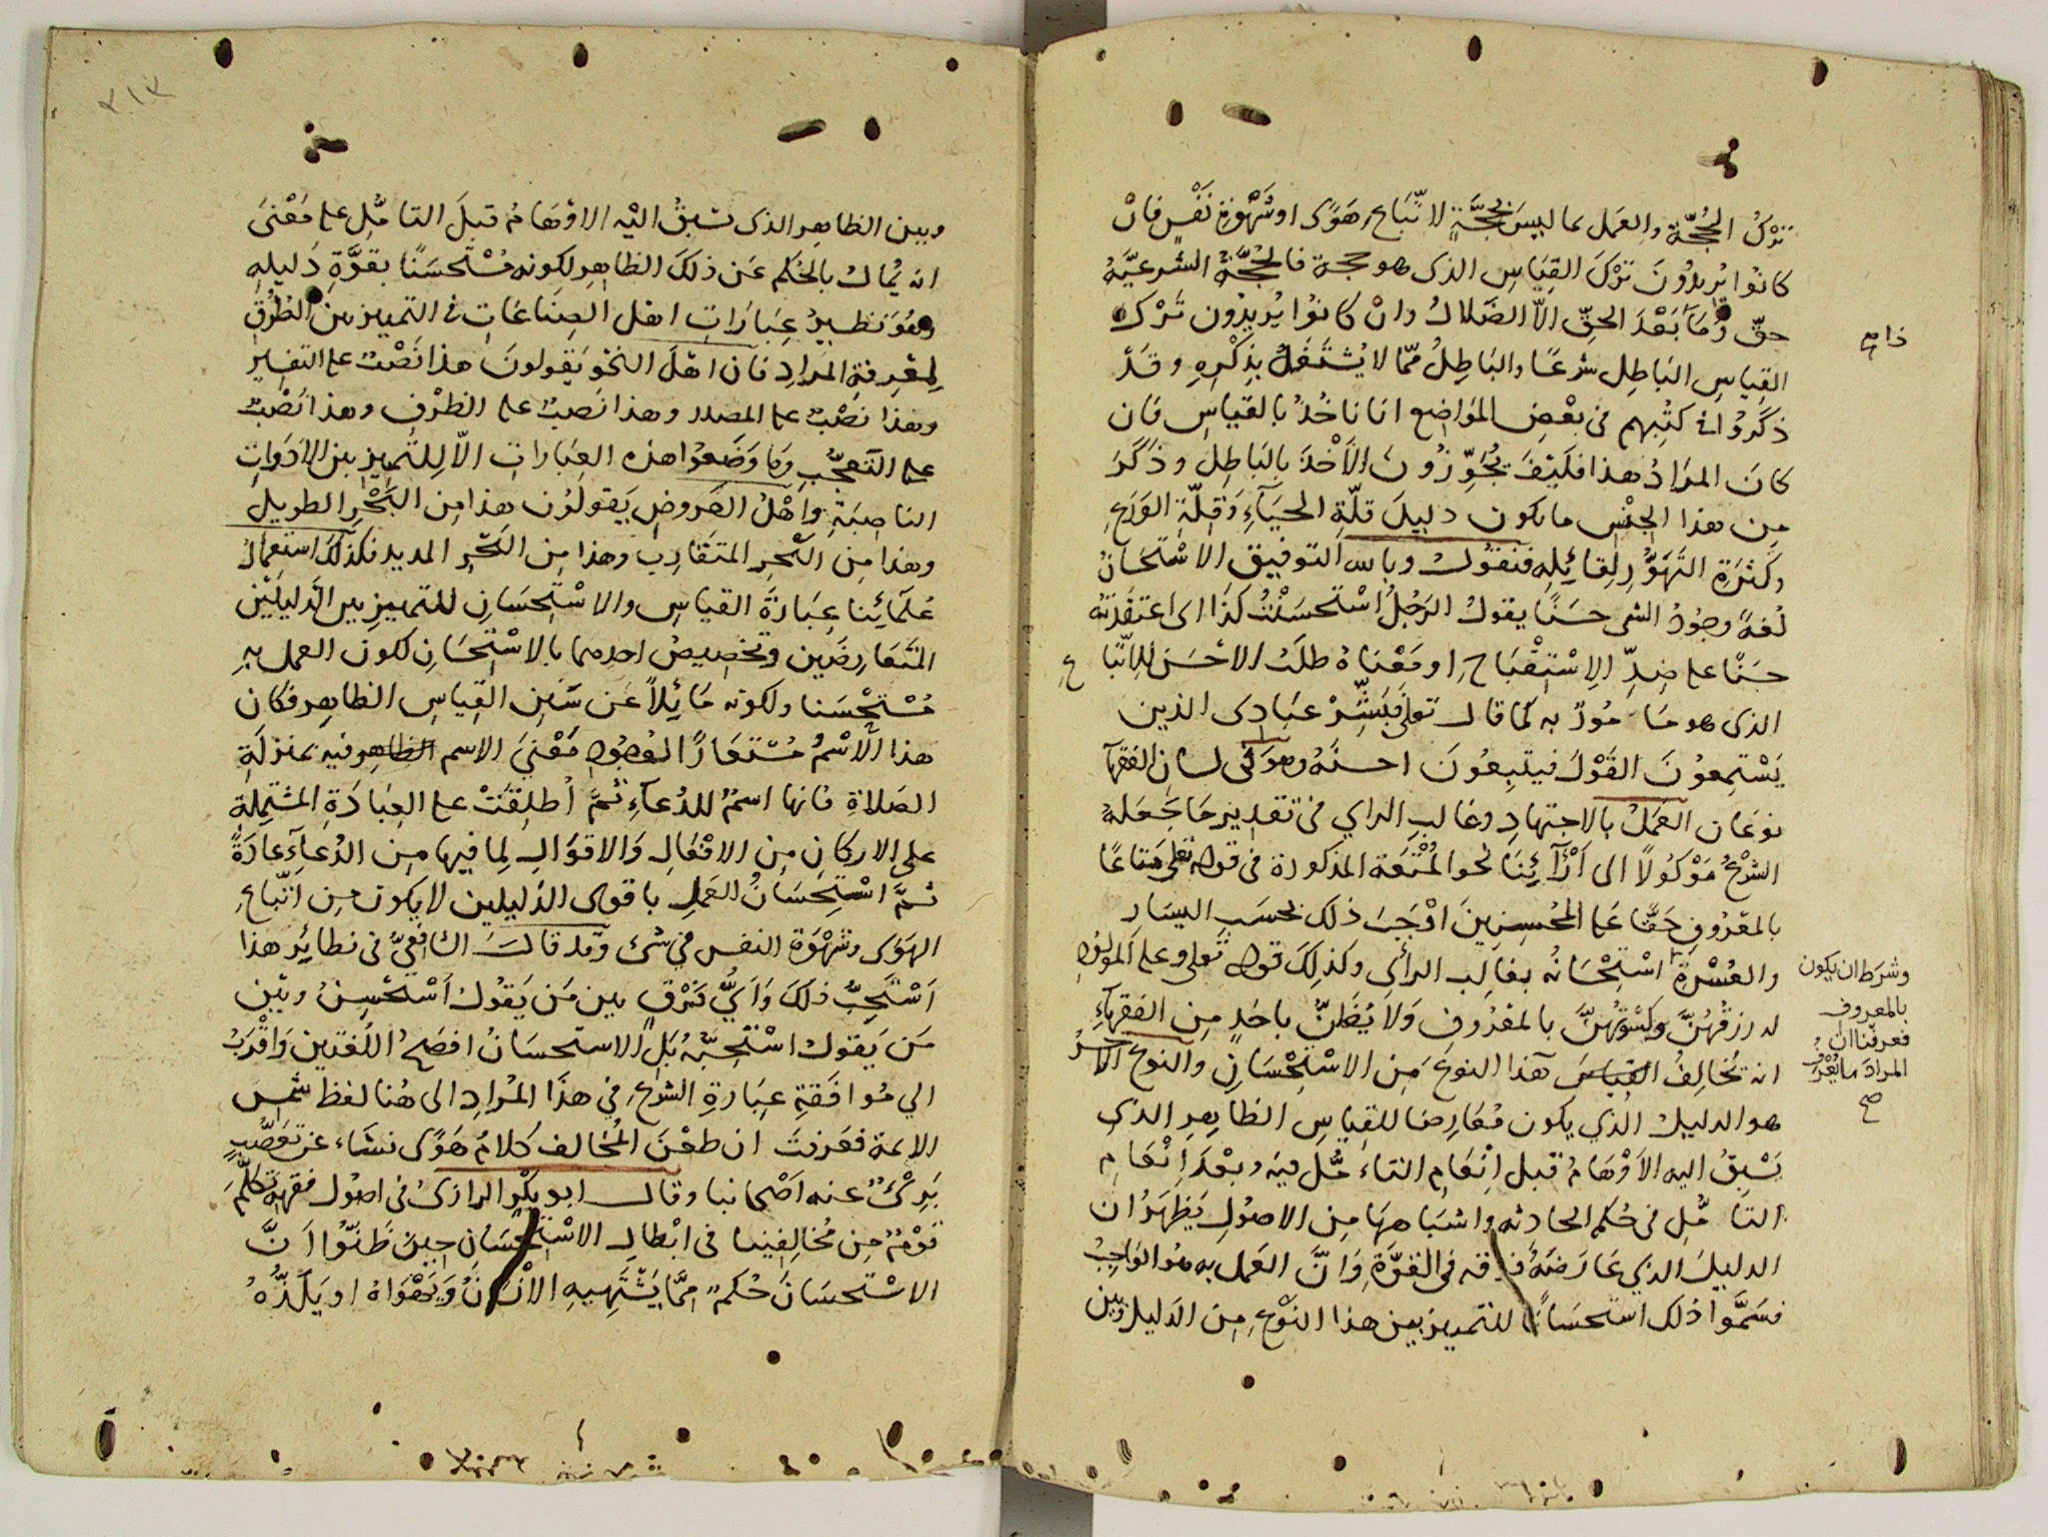 ترك الحجة والعمل بما ليس بحجة لاتباع هوى او شهوة نفس فان
كانوا يريدون ترك القياس الذى هو حجة فالحجة الشرعية
حق وما بعد الحق الا الضلال وان كانوا يريدون ترك
القياس الباطل شرعا والباطل مما لا يشتغل بذكره وقد
ذكروا فى كتبهم فى بعض المواضع انا ناخذ بالقياس فان
كان المراد هذا فكيف يجوزون الاخذ بالباطل وذكر
من هذا الجنس ما يكون دليل قلة الحياء وقلة الورع
وكثرة التهور لقائله فنقول وبالله التوفيق الاستحسان
لغة وجود الشى حسنا يقول الرجل استحسنت كذا اى اعتقدته
حسنا على ضد الاستقباح او معناه طلب الاحسن للاتباع
الذى هو مامور به كما قال تعلى فبشر عبادى الذين
يستمعون القول فيتبعون احسنه وهو فى لسان الفقهآ
نوعان العمل بالاجتهاد وغالب الراي فى تقدير ما جعله
الشرع موكولا الى آرآئنا نحو المتعة المذكورة فى قوله تعلى متاعا
بالمعروف حقا على المحسنين اوجب ذلك بحسب اليسار
والعسرة استحسانه بغالب الرأى وكذلك قوله تعلى وعلى المولود
له رزقهن وكسوتهن بالمعروف ولا يظن باحد من الفقهآء
انه يخالف القياس هذا النوع من الاستحسان والنوع الاخر
هو الدليل الذي يكون معارضا للقياس الظاهر الذى
يسبق اليه الاوهام قبل انعام التاءمل فيه وبعد انعام
التامل فى حكم الحادثه واشباهها من الاصول يظهر ان
الدليل الذي عارضه فوقه فى القوة وان العمل به هو الواجب
فسموا ذلك استحسانا للتمييز بين هذا النوع من الدليل وبين
وشرط ان يكون
بالمعروف
فعرفنا ان
المراد ما يعرف
صح
٢١٣
وبين الظاهر الذى تسبق اليه الاوهام قبل التامل على معنى
انه يمال بالحكم عن ذلك الظاهر لكونه مستحسنا بقوة دليله
وهو نظير عبارات اهل الصناعات فى التمييز بين الطرق
لمعرفة المراد فان اهل النحو يقولون هذا نصب على التفسير
وهذا نصب على المصدر وهذا نصب على الظرف وهذا نصب
على التعجب وما وضعوا هذه العبارات الا للتمييز بين الادوات
الناصبة واهل العروض يقولون هذا من البحر الطويل
وهذا من البحر المتقارب وهذا من البحر المديد فكذلك استعمال
علمائنا عبارة القياس والاستحسان للتمييز بين الدليلين
المتعارضين وتخصيص احدهما بالاستحسان لكون العمل به
مستحسنا ولكونه مائلا عن سنن القياس الظاهر فكان
هذا الاسم مستعارا لوجود معنى الاسم الظاهر فيه بمنزلة
الصلاة فانها اسم للدعآء ثم اطلقت على العبادة المشتملة
على الاركان من الافعال والاقوال لما فيها من الدعآء عادة
ثم استحسان العمل باقوى الدليلين لا يكون من اتباع
الهوى وشهوة النفس فى شىء وقد قال الشافعي فى نظائر هذا
استحب ذلك واي فرق بين من يقول استحسن وبين
من يقول استحبه بل الاستحسان افصح اللغتين واقرب
الي موافقة عبارة الشرع في هذا المراد الى هنا لفظ شمس
الائمة فعرفت ان طعن المخالف كلام هوى نشاء عن تعصب
برىء عنه اصحابنا وقال ابو بكر الرازى فى اصول فقهه تكلم
قوم من مخالفينا فى ابطال الاستحسان حين ظنوا ان
الاستحسان حكم مما يشتهيه الانسان ويهواه او يلذه